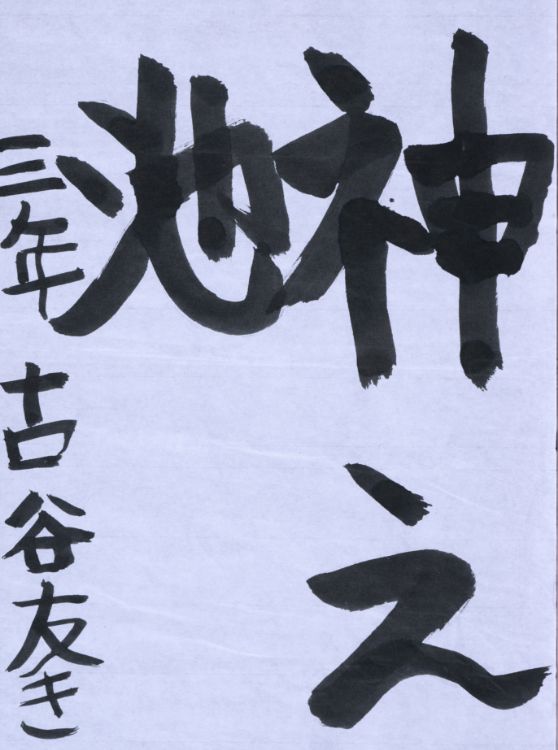 神え
池
三年 古谷友き